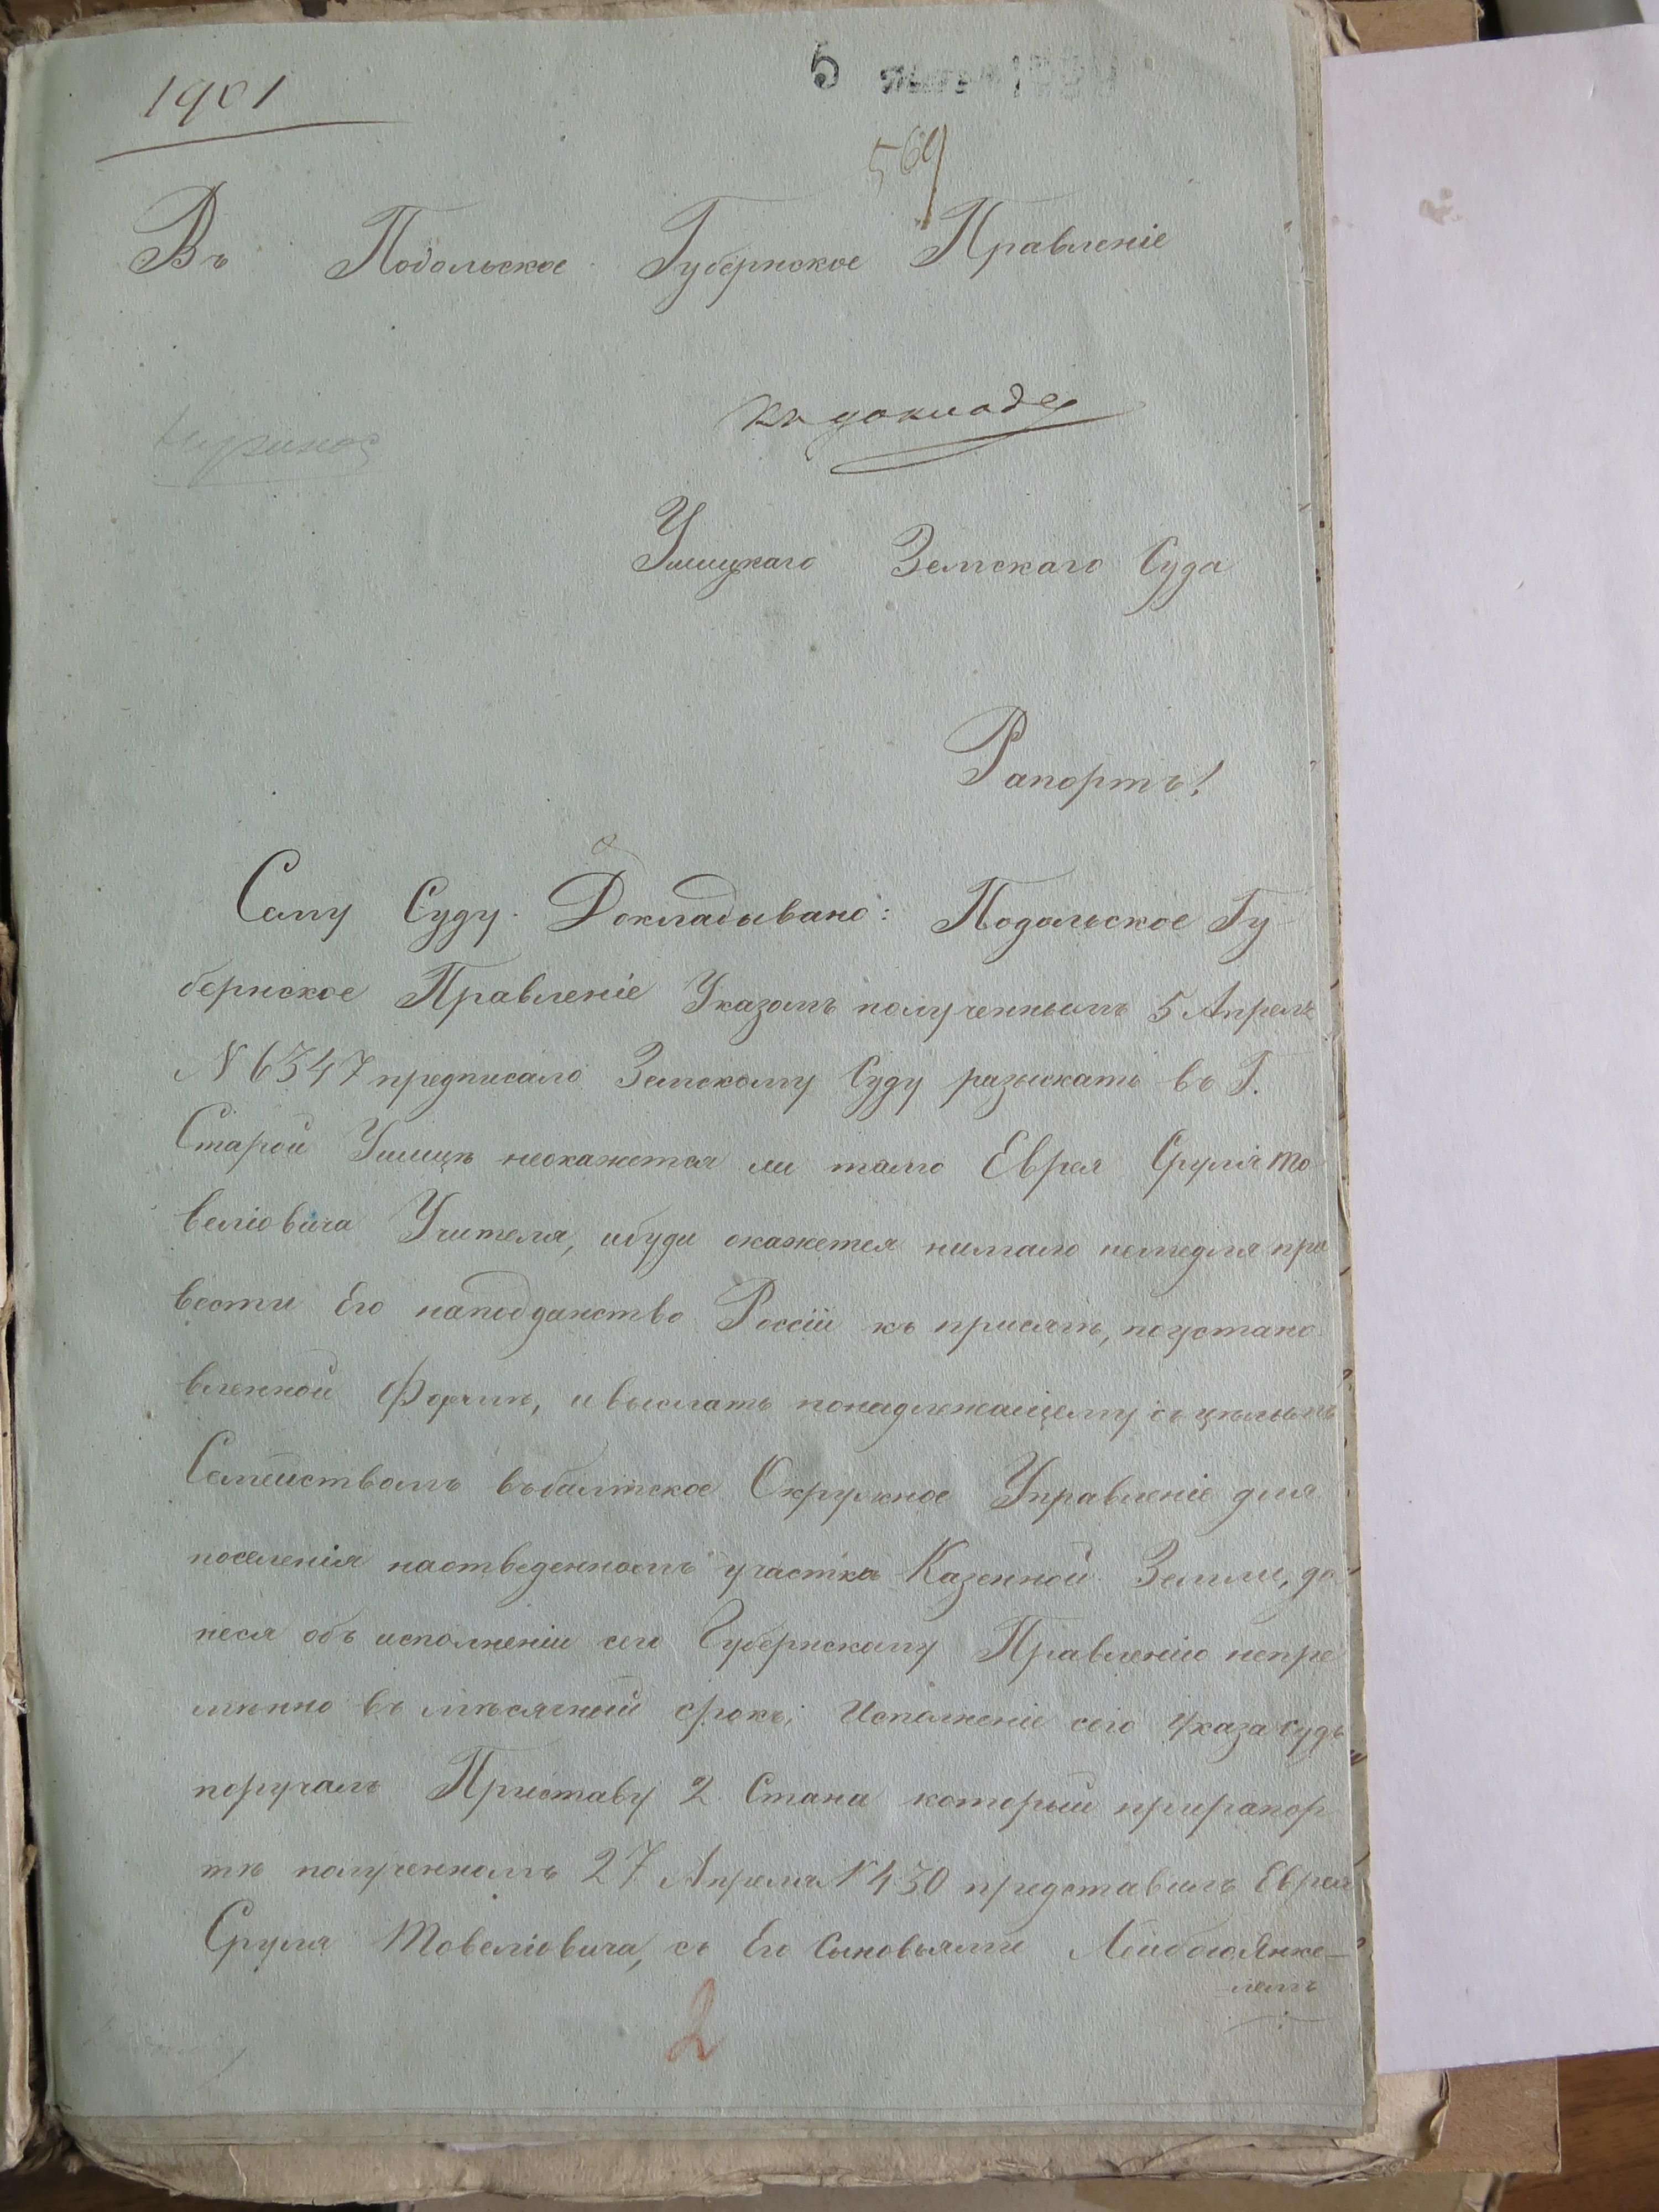 1901
5
569
Въ Подольское Губернское Правленіе
къ докладу
Ушицкаго Земскаго Суда
Рапортъ!
Сему Суду Докладывано: Подольское Гу-
бернское Правленіе Указомъ полученнымъ 5 Апреля
N 6347 предписало Земскому Суду разыскать въ Г.
Старой Ушицѣ неокажется ли тамо Еврея Сруля То-
веліовича Учителя, ибуди окажется нимало немедля при
вести Его наподданство Россіи къ присягѣ, поустано
вленной Формѣ, и выслать понадлежащему съ цѣлымъ
Семействомъ въбалтское Окружное Управленіе для
поселенія наотведенномъ участкѣ Казенной Земли, до
неся объ исполненіи сего Губернскому Правленію непре
мѣнно въ мѣсячный срокъ; Исполненіе сего Указа Судъ
поручалъ Приставу 2 Стана который прирапор
тѣ полученномъ 27 Апреля N 430 представилъ Еврея
Сруля Товеліовича, съ Его Сыновьями Лейбою Янке-
лемъ
2